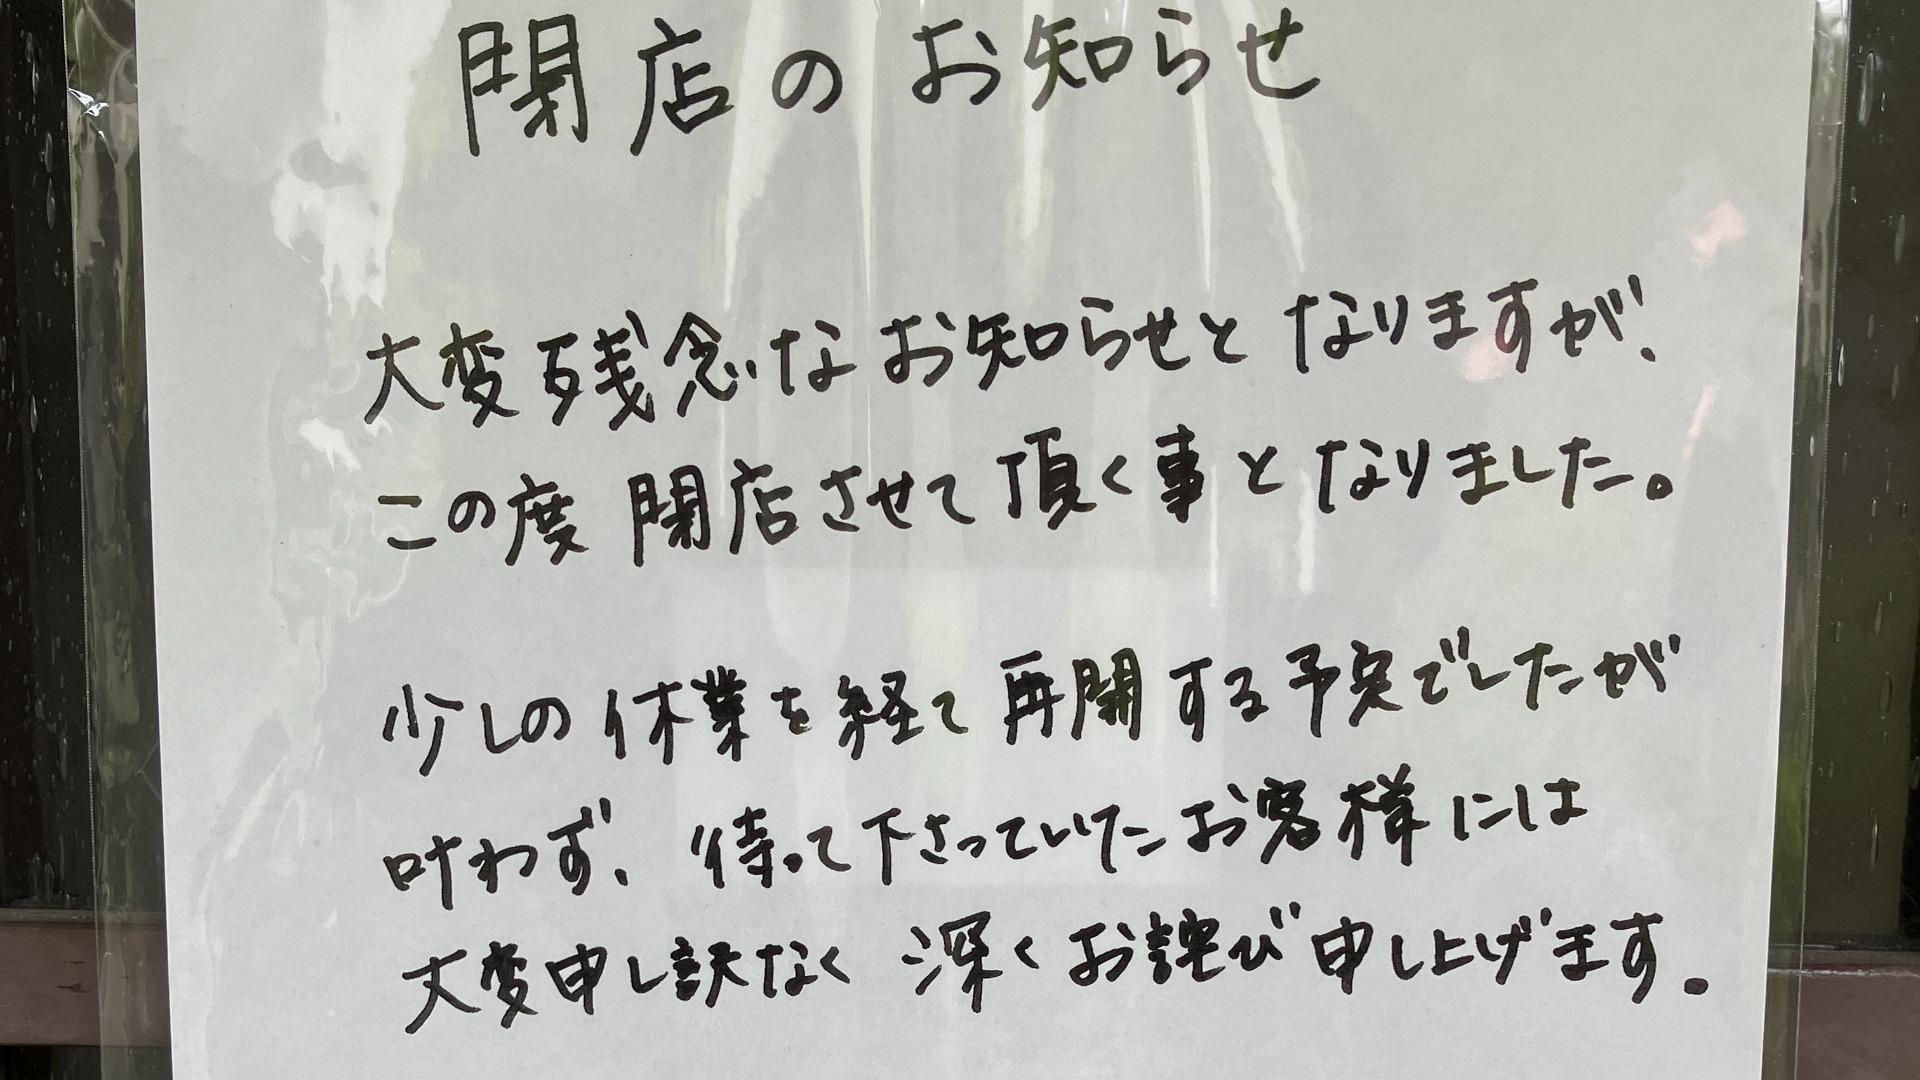 閉店のお知らせ
大変残念なお知らせとなりますが、
この度閉店させて頂く事となりました。
少しの休業を経て再開する予定でしたが
叶わず、待って下さっていたお客様には
大変申し訳なく深くお詫び申し上げます。